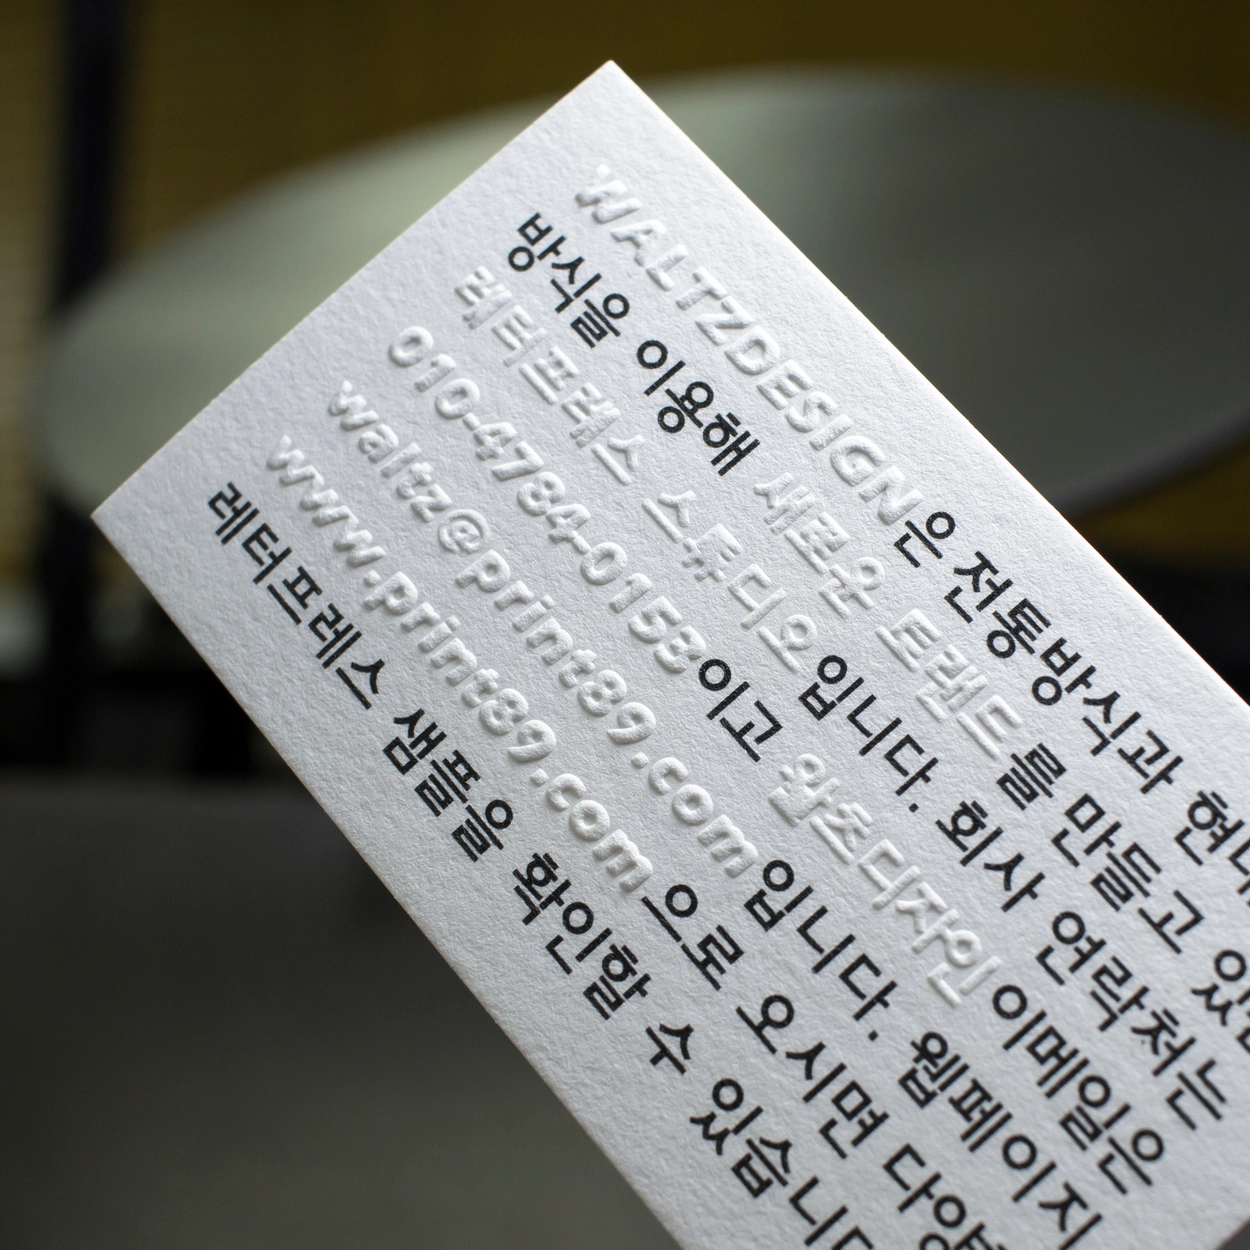 WALTZDESIGN은 전통방식과
방식을 이용해 새로운 트랜드를 만들고
레터프레스 스튜디오입니다. 회사 연락처는
010-4784-0153이고 왈츠디자인 이메일은
waltz@print89.com입니다. 웹페이지
www.print89.com으로 오시면 다양
레터프레스 샘플을 확인할 수 있습니다